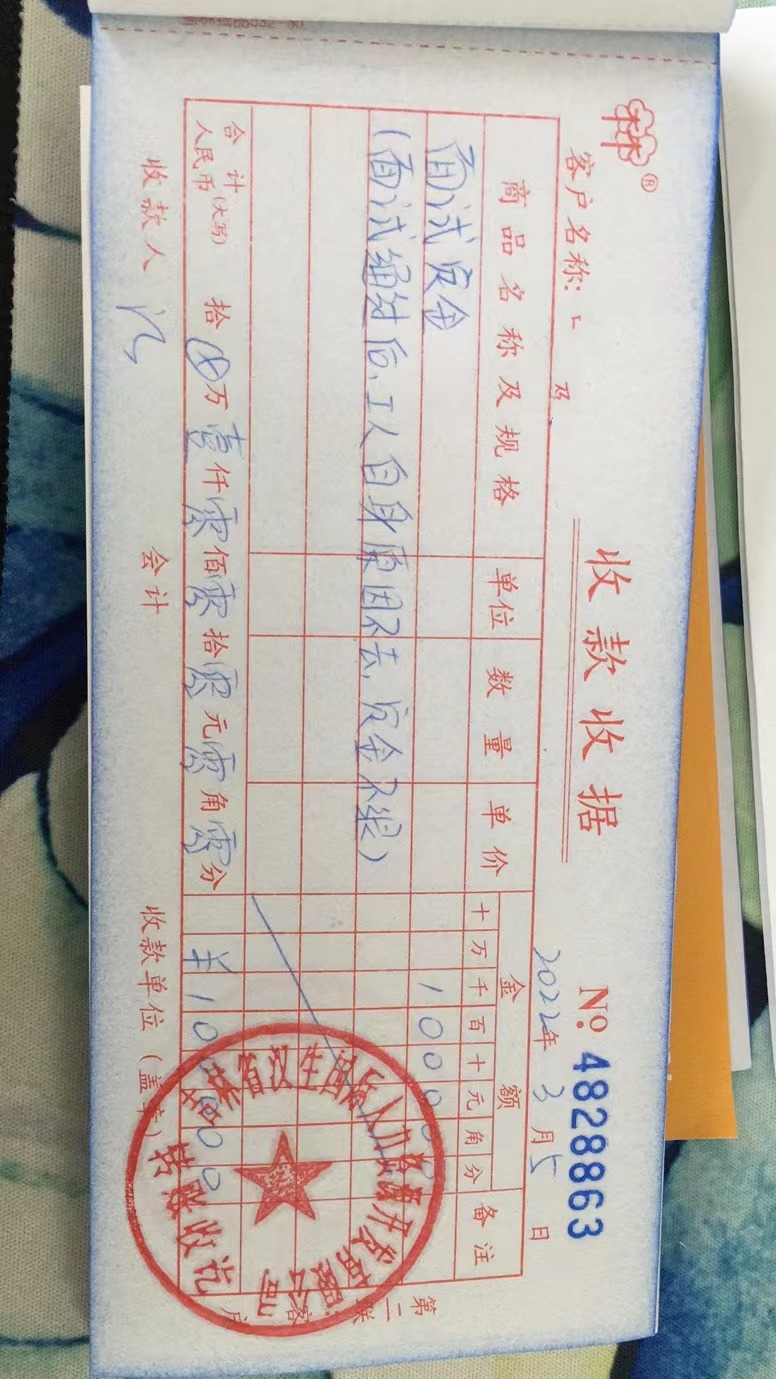 收款收据
No. 4828863
客户名称:
2022年 3月5日
商品名称及规格 单位 数量 单价 金额 备注
十万千百十元角分
面试定金
1000
(面试通过后、工人自身原因不去,定金不退)
合计人民币(大写) 拾 万壹仟零佰零拾零元零角零分 ¥10
收款人 会计 收款单位(盖章)
转账收讫
第二联